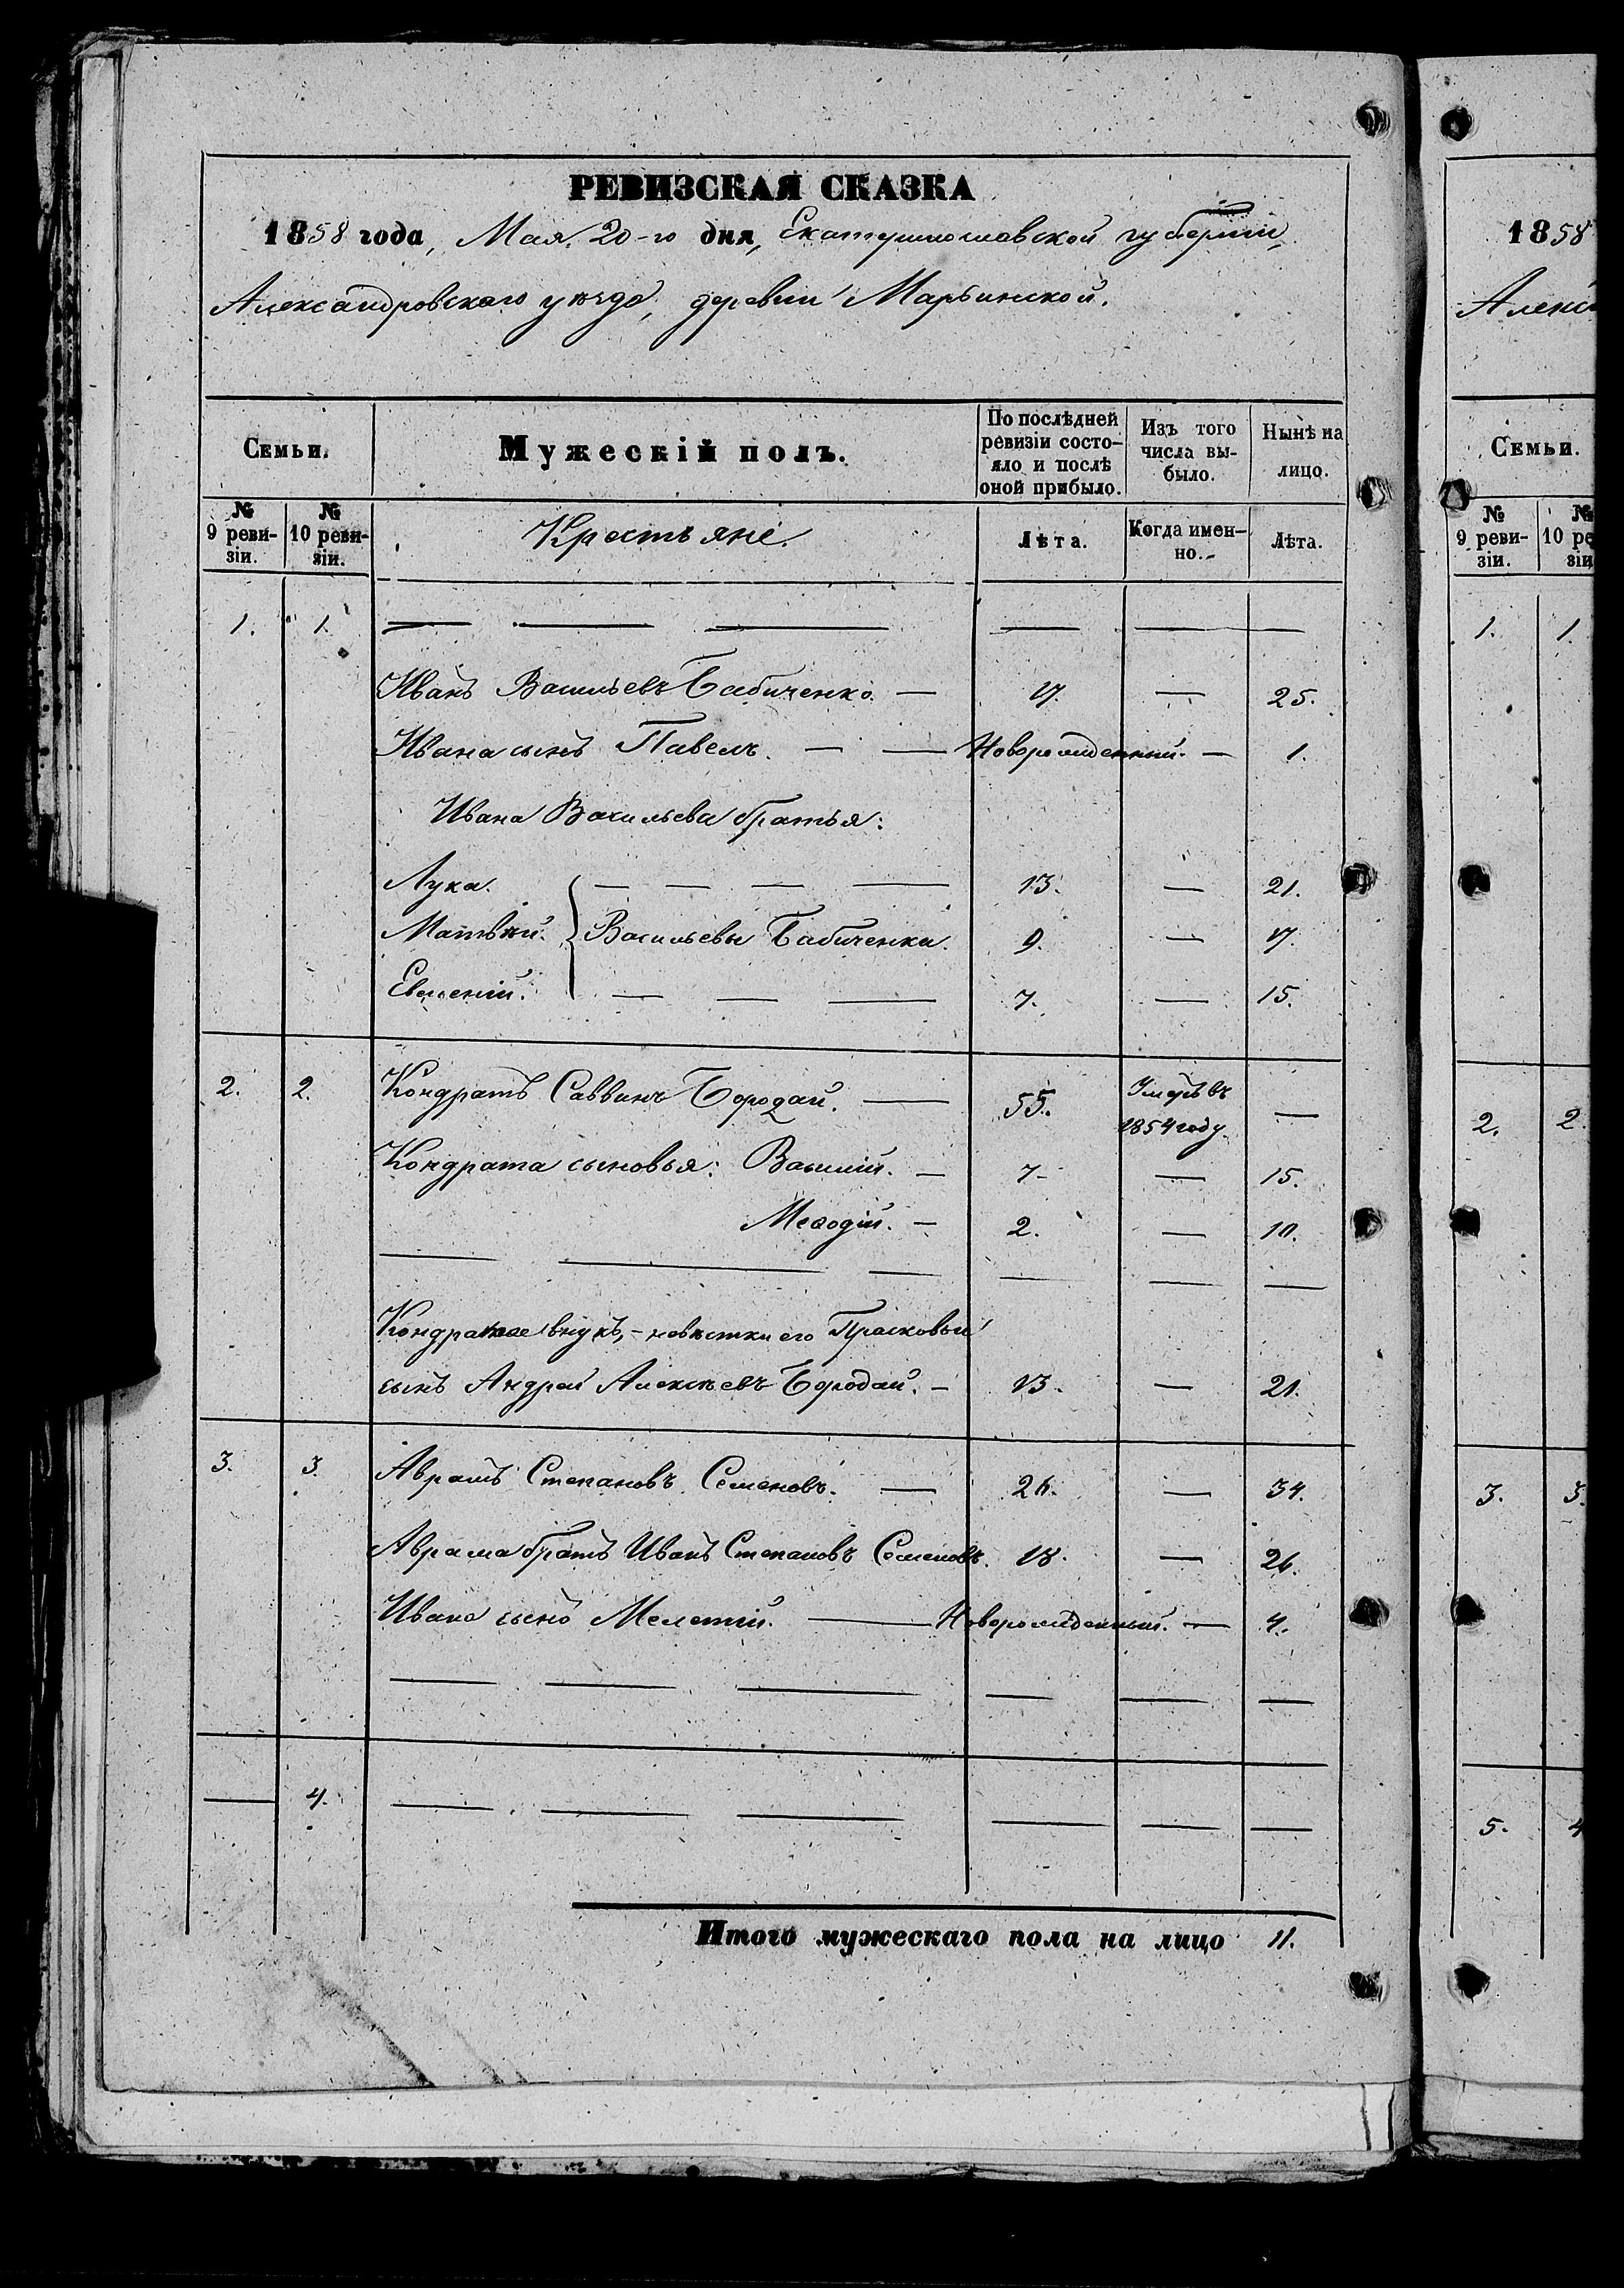 РЕВИЗСКАЯ СКАЗКА
1858 года, Мая 20-го дня, Екатеринославской губернии,
Александровскаго уѣзда, деревни Марьинской.
Семьи.
Мужескій полъ.
По послѣдней ревизіи состояло и послѣ оной прибыло.
Изъ того числа выбыло.
Нынѣ на лицо.
№ 9 ревизіи.
№ 10 ревизіи.
Крестьяне.
Лѣта.
Когда именно.
Лѣта.
1. 1. — — — — — —
Иванъ Васильевъ Бабиченко. — 17. — 25.
Ивана сынъ Павелъ. — — Новорожденный. — 1.
Ивана Васильева братья:
Лука. — — — — 13. — 21.
Матвѣй. } Васильевы Бабиченки. 9. — 17.
Евгеній. — — — 7. — 15.
2. 2. Кондратъ Саввинъ Бородай. — 55. Умеръ въ 1854 году. —
Кондрата сыновья: Василій. — 7. — 15.
Мефодій. — 2. — 10.
— — — — — —
Кондрата внукъ, - невѣстки его Прасковьи
сынъ Андрей Алексѣевъ Бородай. — 13. — 21.
3. 3. Аврамъ Степановъ Семеновъ. — 26. — 34.
Аврама братъ Иванъ Степановъ Семеновъ. 18. — 26.
Ивана сынъ Мелетій. — Новорожденный. — 4.
— — — — — —
— 4. — — — — — —
Итого мужескаго пола на лицо 11.
1858
Алекса
Семьи.
№ 9 ревизіи.
№ 10 ре зіи
1. 1.
2. 2.
3. 3.
5. 4